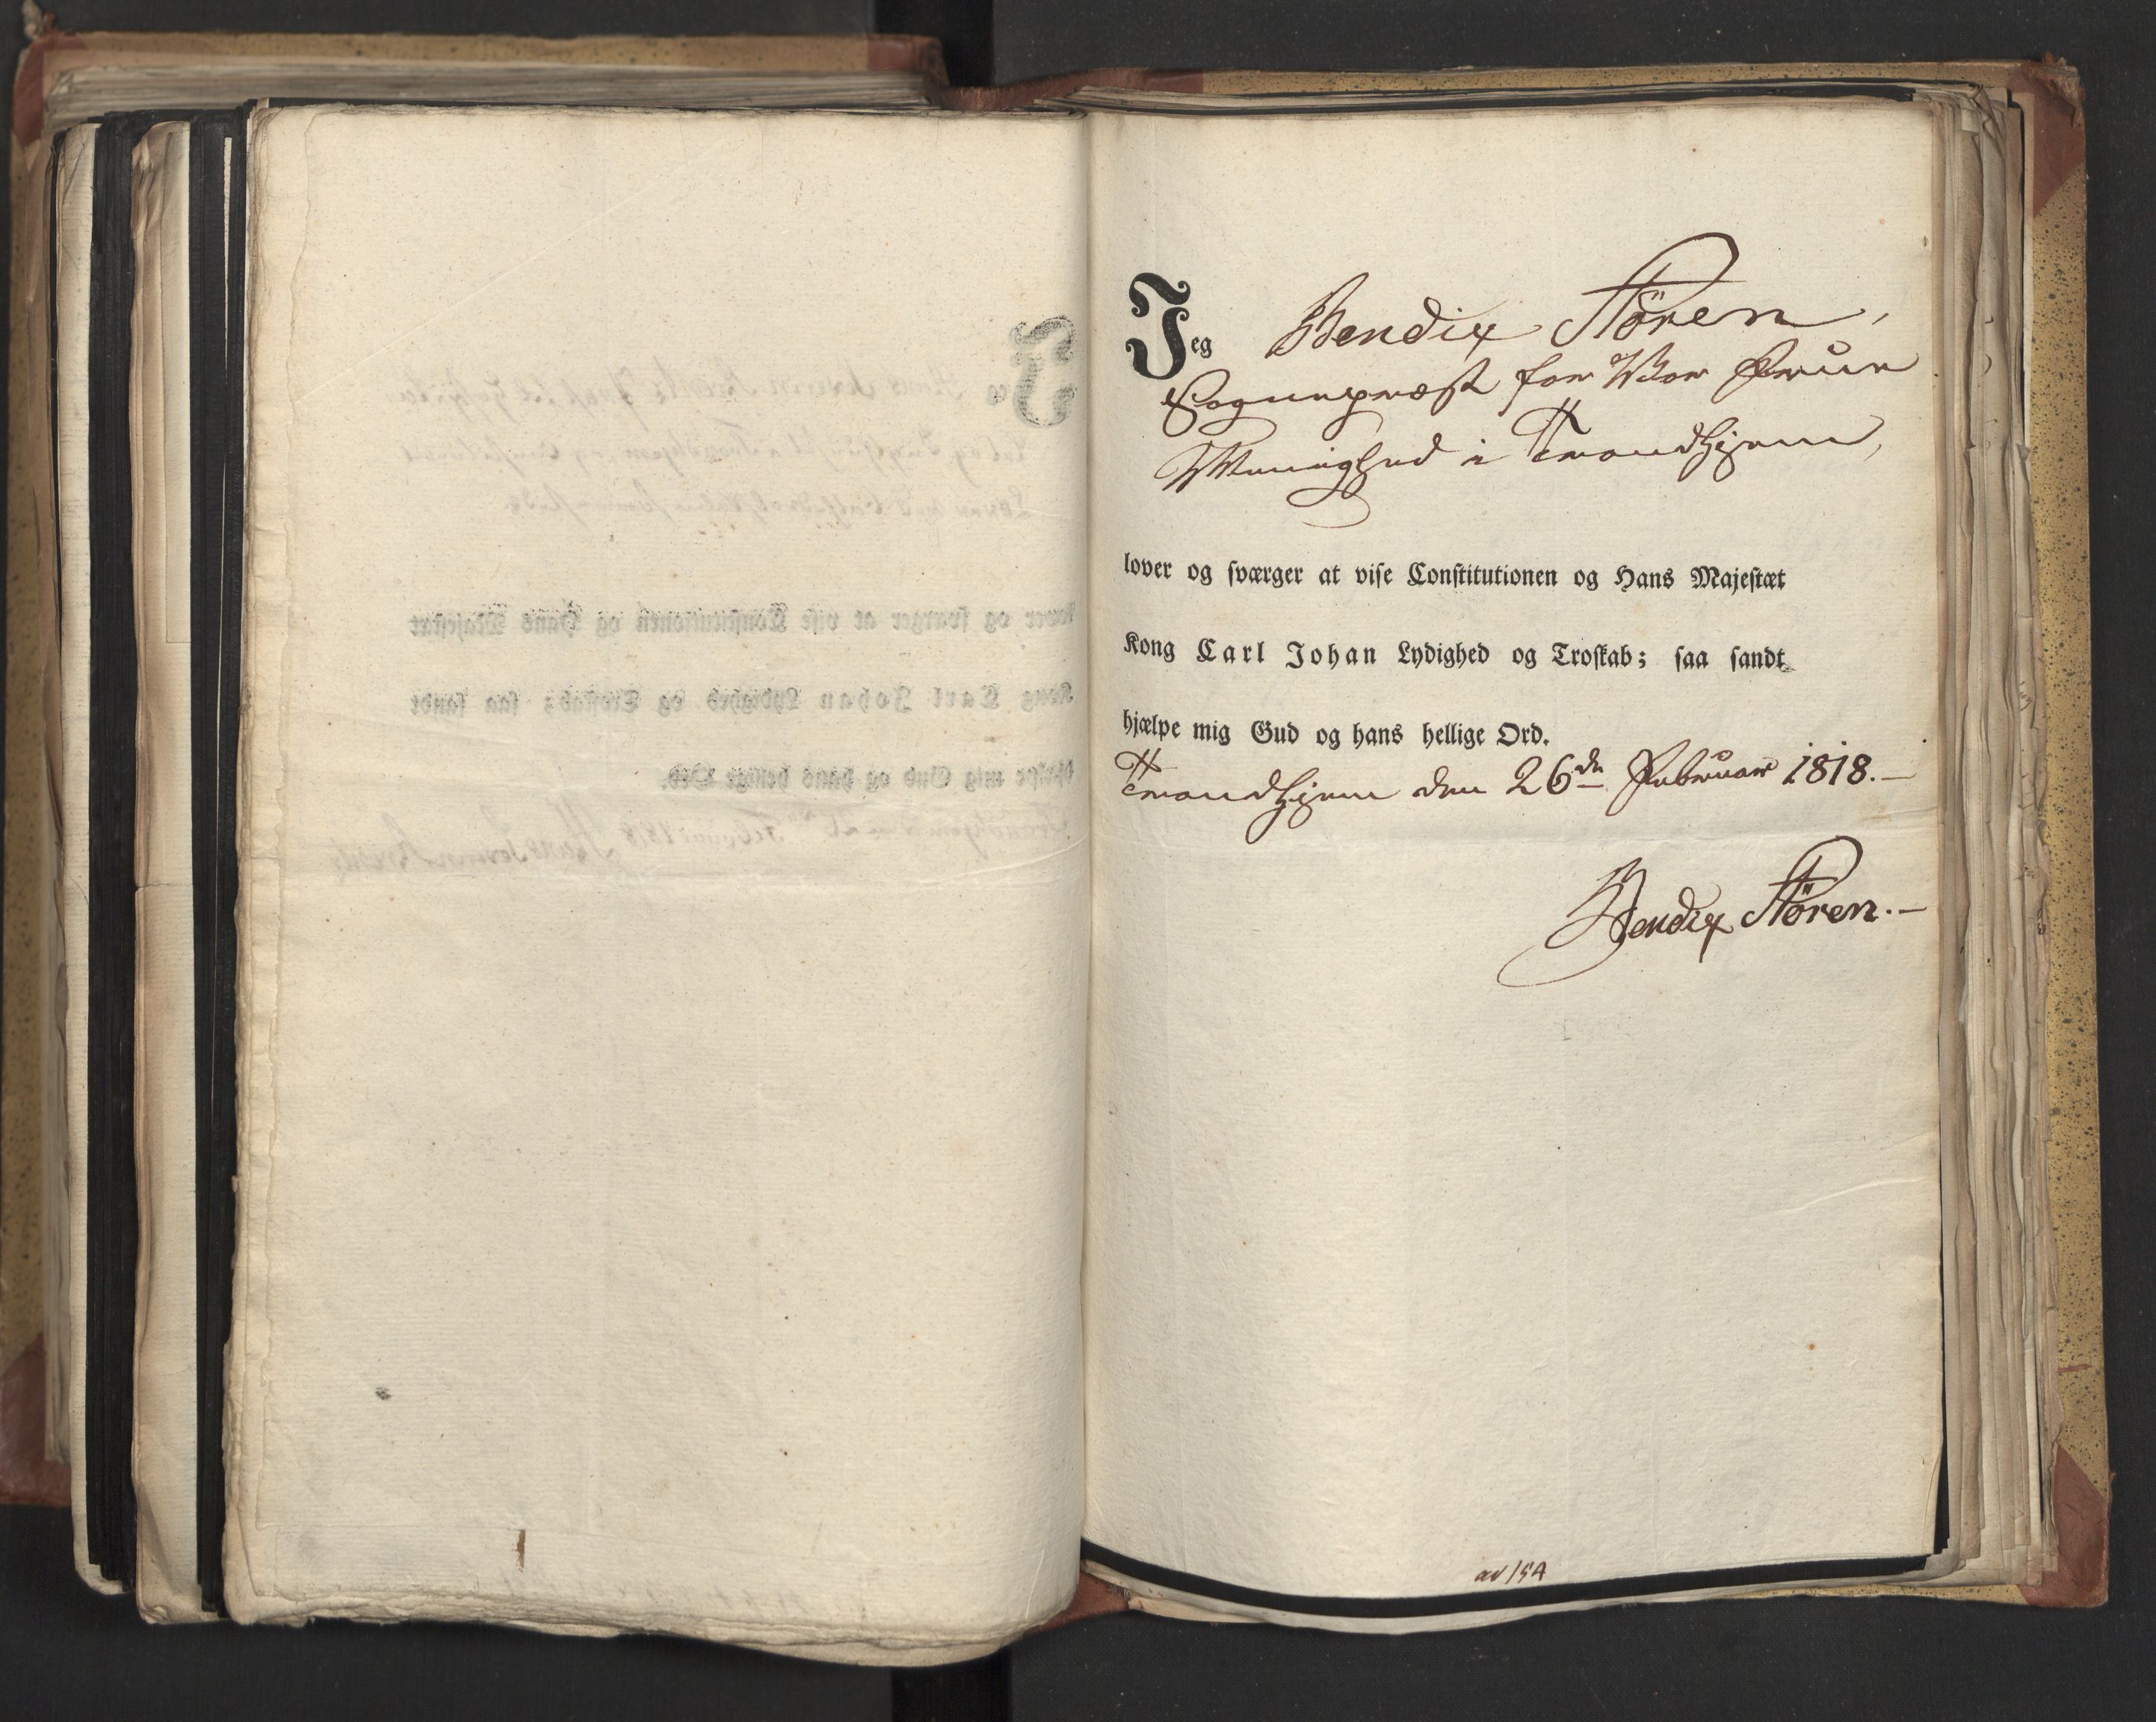 Jeg Bendix Støren,
Sognepræst for Vor Frue
Menighed i Trondhjem,
lover og sværger at vise Constitutionen og Hans Majestæt
Kong Carl Johan Lydighed og Troskab; saa sandt
hjælpe mig Gud og hans hellige Ord.
Trondhjem den 26de Februar 1818.—
Bendix Støren.—